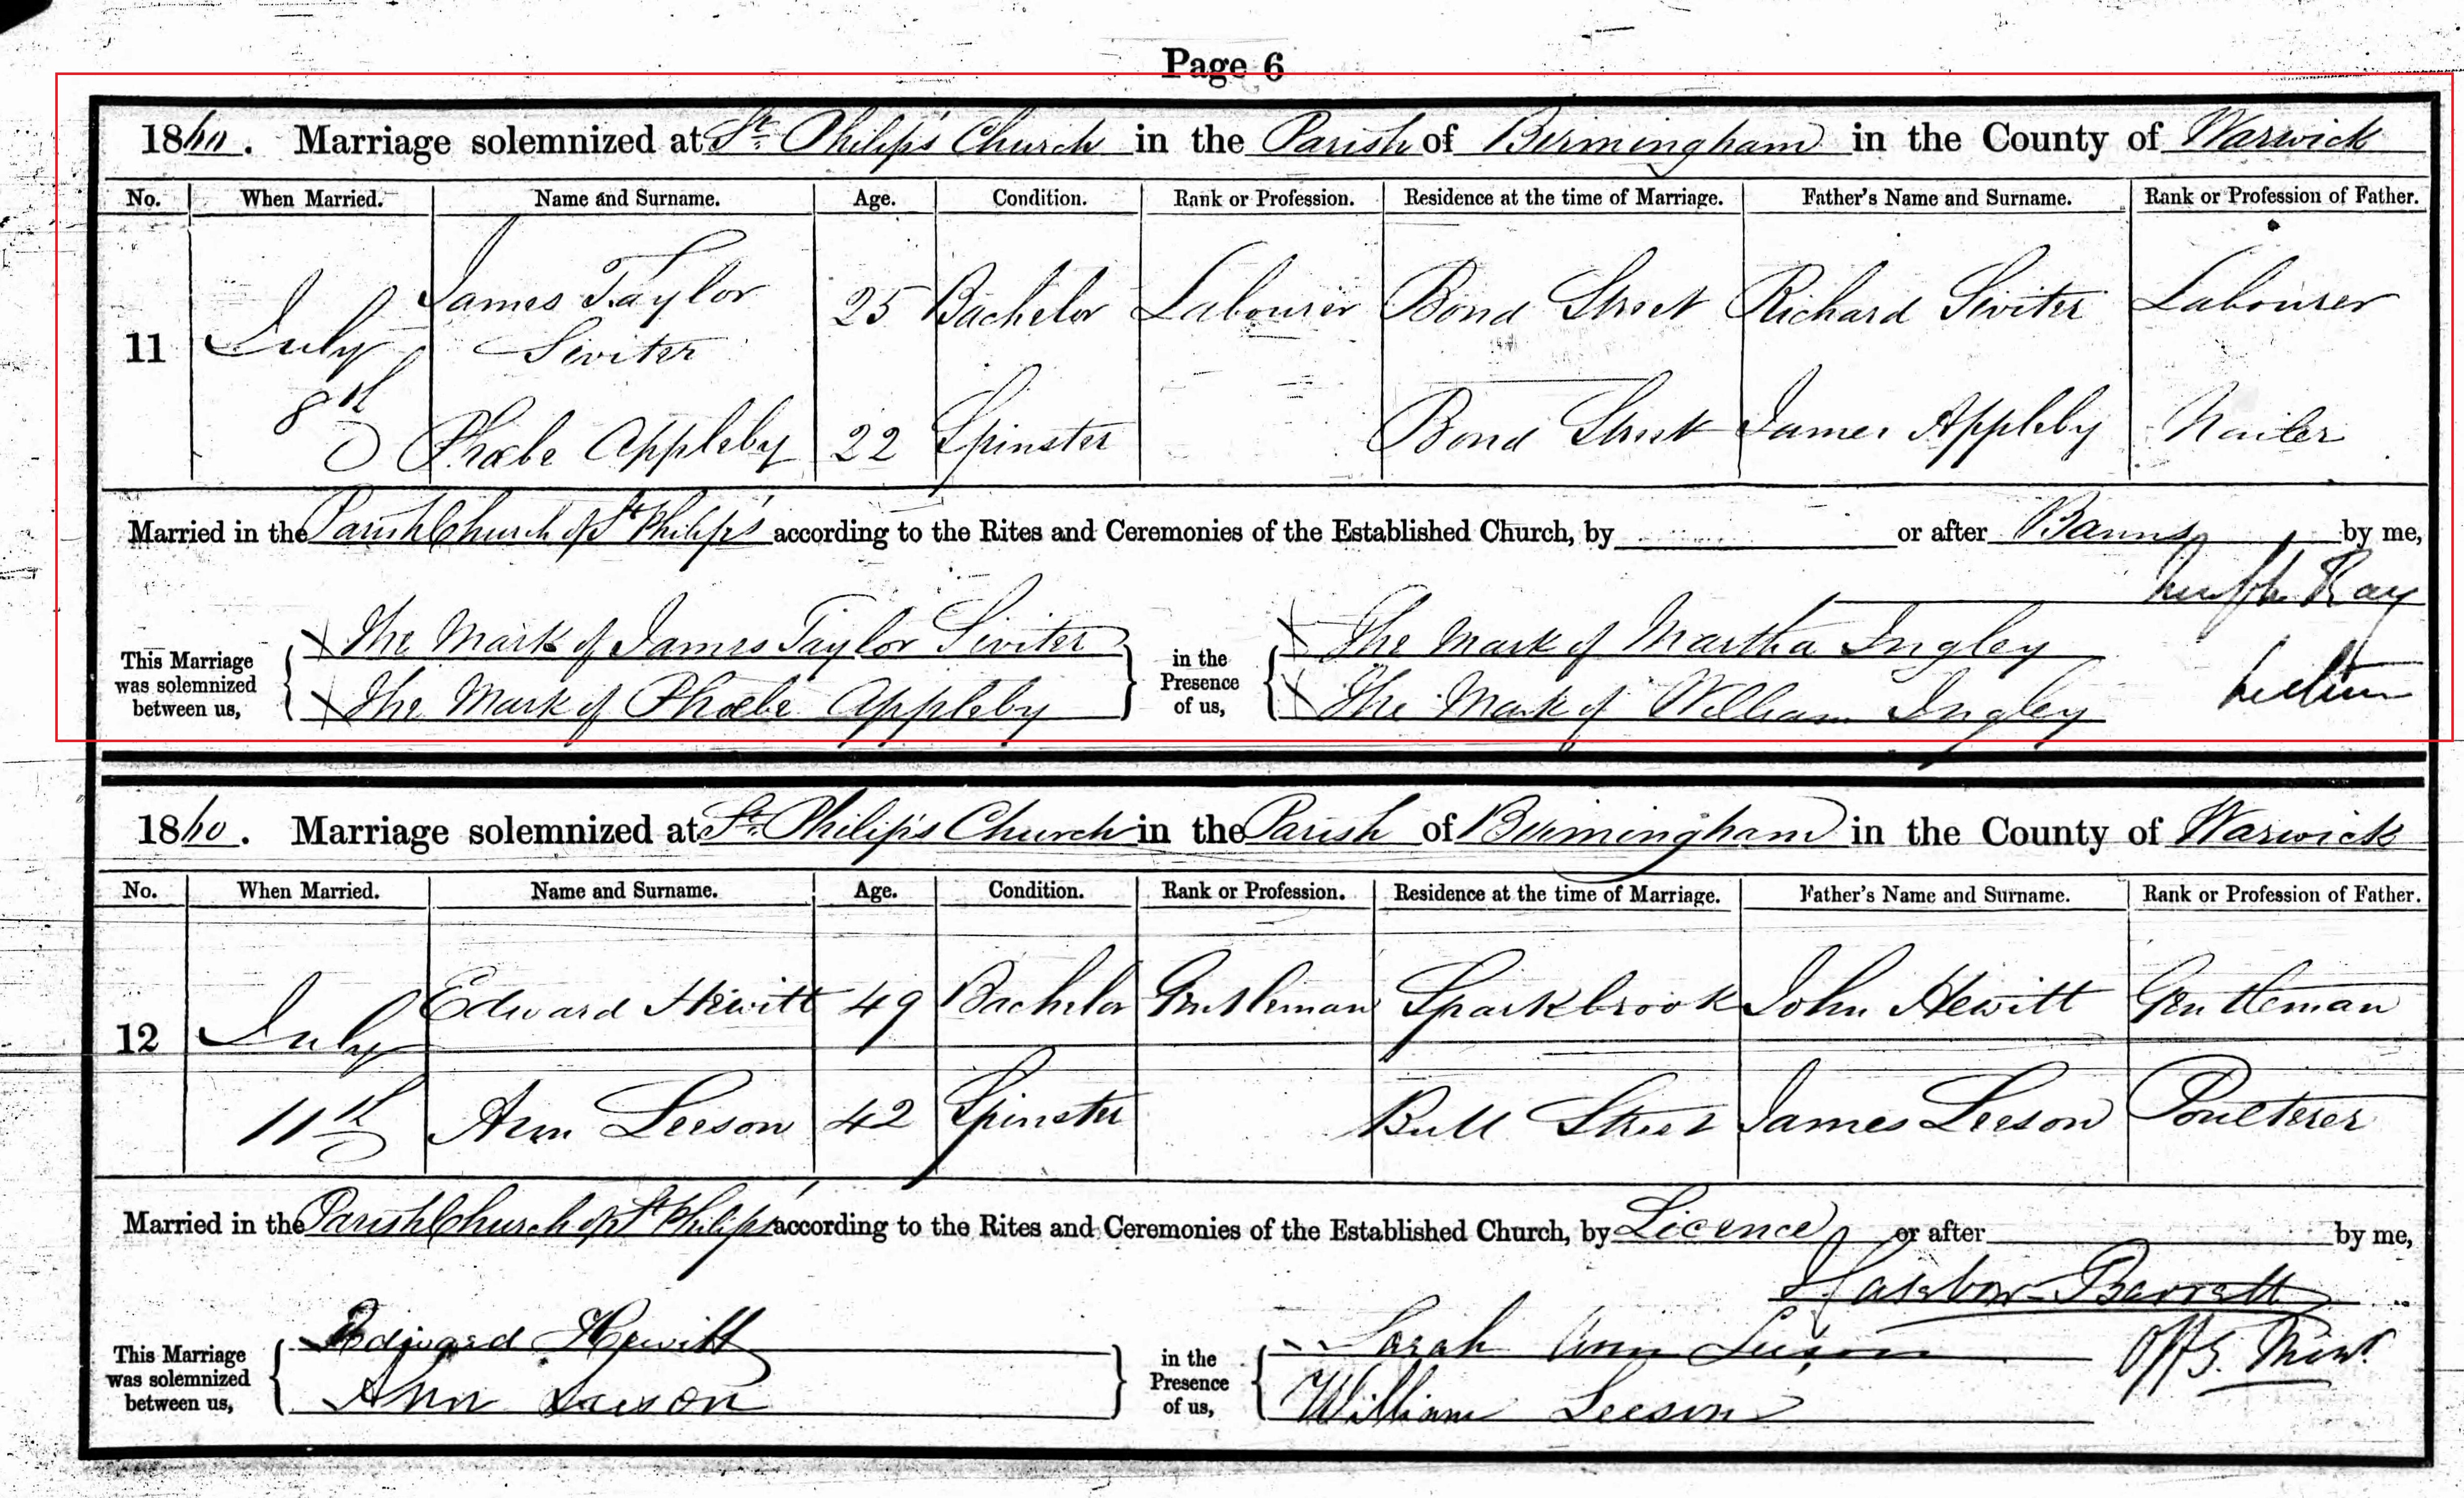 Page 6
1860. Marriage solemnized at St. Philip's Church in the Parish of Birmingham in the County of Warwick
No. When Married. Name and Surname. Age. Condition. Rank or Profession. Residence at the time of Marriage. Father's Name and Surname. Rank or Profession of Father.
James Taylor
11 July Siviter 25 Bachelor Labourer Bond Street Richard Siviter Labourer
8th Phoebe Appleby 22 Spinster Bond Street James Appleby Nailer
Married in the Parish Church of St Philip's according to the Rites and Ceremonies of the Established Church, by or after Banns by me,
Ray
This Marriage was solemnized between us, X The Mark of James Taylor Siviter in the Presence of us, X The Mark of Martha Ingley
X The Mark of Phoebe Appleby X The Mark of William Ingley
1860. Marriage solemnized at St. Philip's Church in the Parish of Birmingham in the County of Warwick
No. When Married. Name and Surname. Age. Condition. Rank or Profession. Residence at the time of Marriage. Father's Name and Surname. Rank or Profession of Father.
12 July Edward Hewitt 49 Bachelor Gentleman Sparkbrook John Hewitt Gentleman
11th Ann Leeson 42 Spinster Bull Street James Leeson Poulterer
Married in the Parish Church of St Philip's according to the Rites and Ceremonies of the Established Church, by Licence or after by me,
Barrett
This Marriage was solemnized between us, Edward Hewitt in the Presence of us, Sarah Ann Leeson Offg. Minr.
Ann Leeson William Leeson